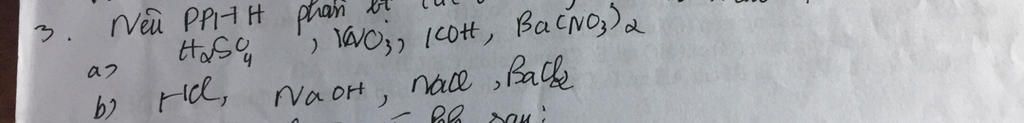 3. Nêu PPHH phân bt các
a) H2SO4, KNO3, KOH, Ba(NO3)2
b) HCl, NaOH, NaCl, BaCl2